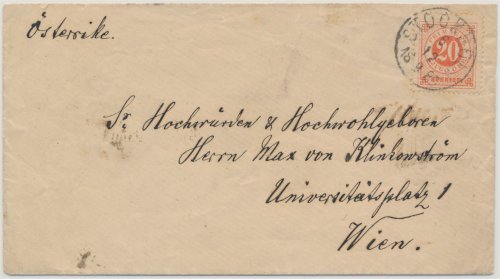 Österrike.
20
Sr. Hochwürden & Hochwohlgeboren
Herrn Max von Klinkowström
Universitätsplatz 1
Wien.